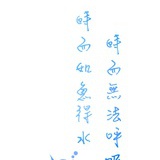 時而無法呼吸
時而如魚得水